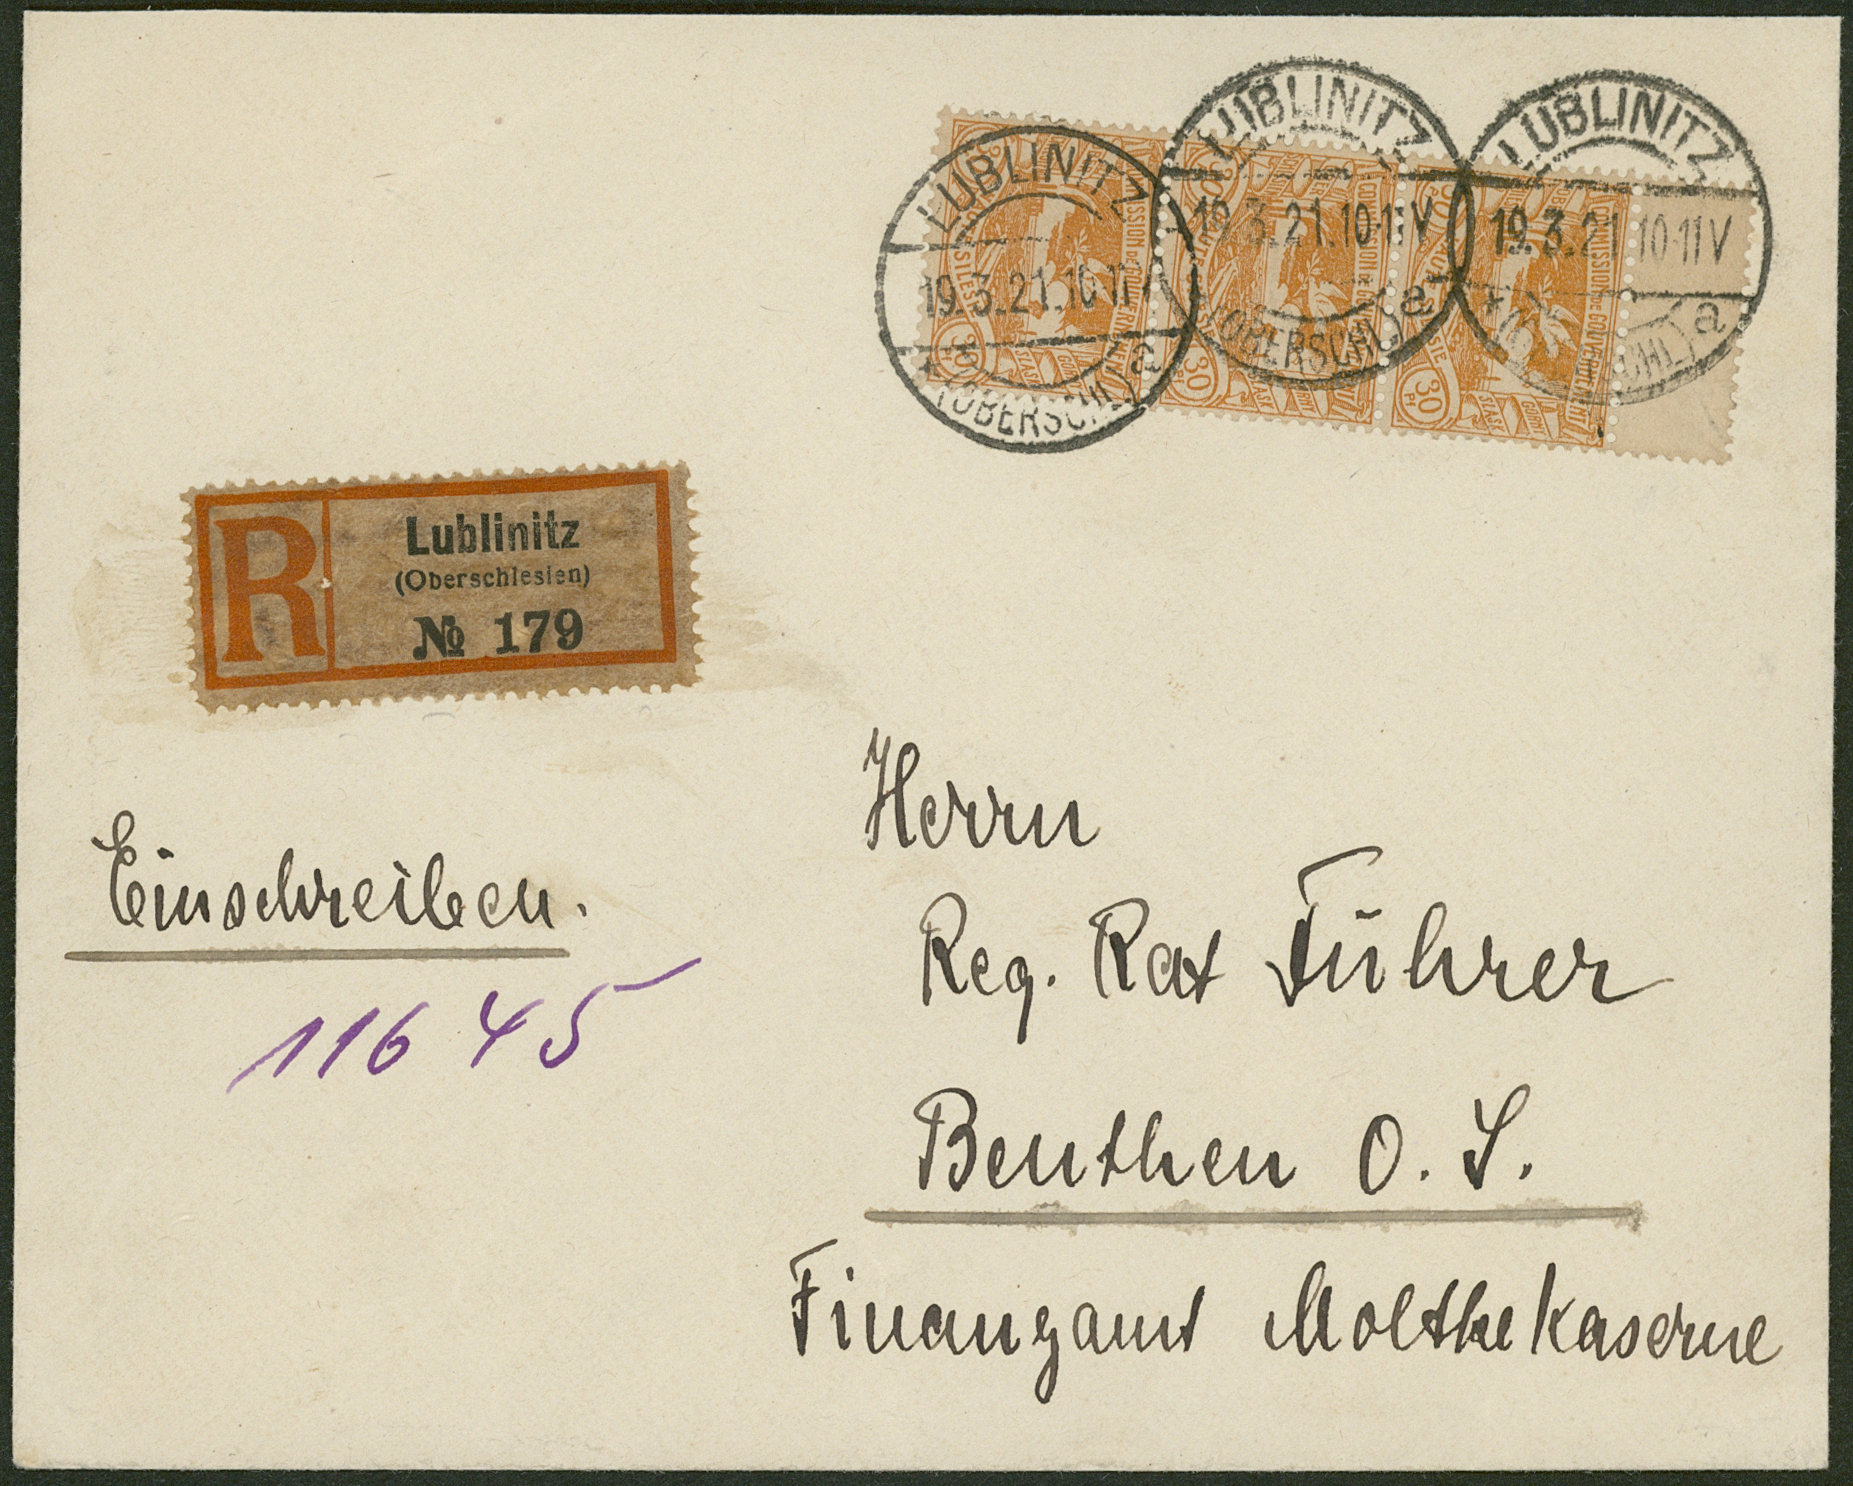 LUBLINITZ
19.3.21.10-11V
* (OBERSCHL.) a
LUBLINITZ
19.3.21.10-11V
(OBERSCHL.) a
LUBLINITZ
19.3.21.10-11V
* a
COMMISSION DE GOUVERNEMENT
30
30 Pf
30 Pf
R
Lublinitz
(Oberschlesien)
№ 179
Einschreiben.
11645
Herrn
Reg. Rat Führer
Beuthen O. S.
Finanzamt Moltkekaserne